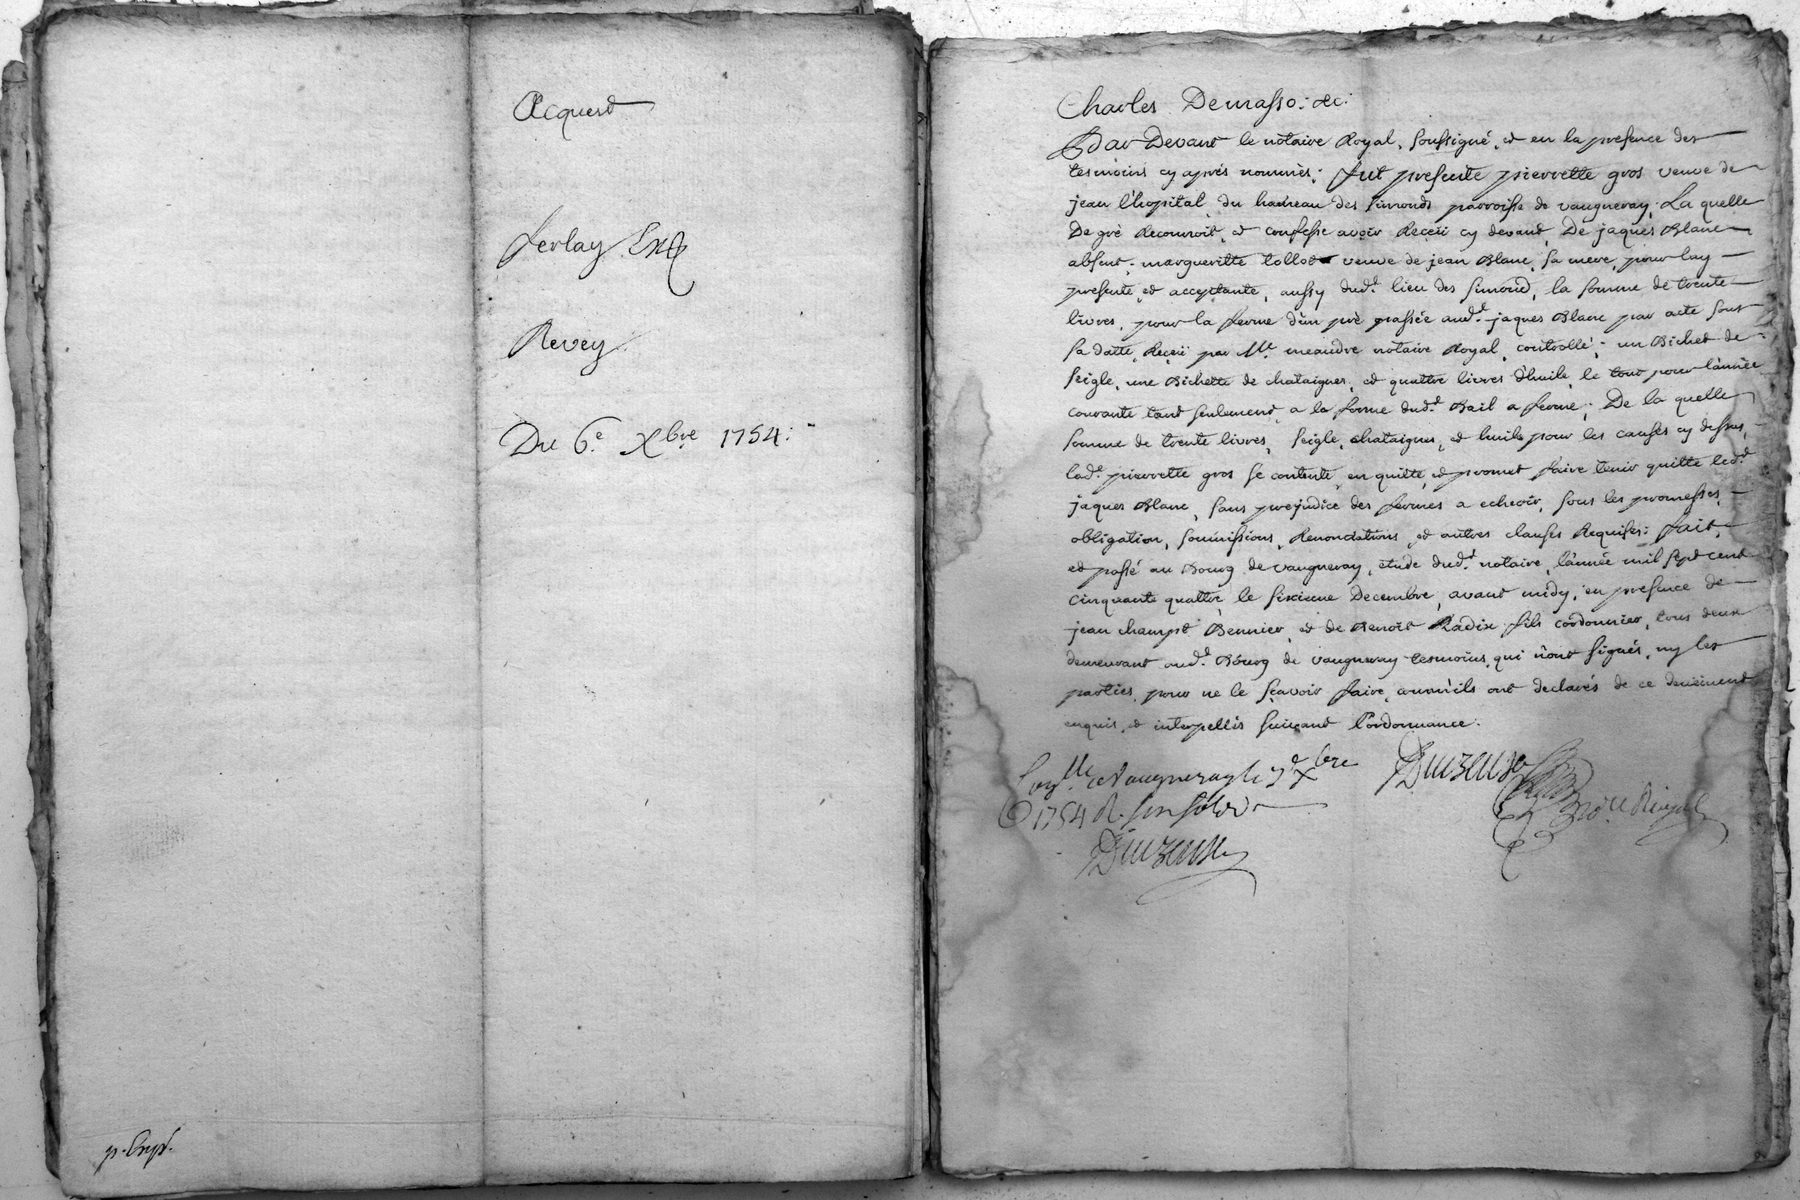 Acquest
ferlay
Revey
Du 6.e Xbre 1754:
p. Exp.
Charles Demasso: &c:
Par Devant le notaire Royal, soussigné, et en la presence des
tesmoins cy aprés nommés; fut presente pierrette gros veuve de
jean l'hopital, du hameau des simonds parroisse de vaugneray; La quelle
De gré Reconnoit, et confesse avoir Receü cy devant, De jaques Blanc
absent; margueritte tollot veuve de jean Blanc, sa mere, pour luy
presente, et acceptante, aussy dud.t lieu des simond, la somme de trente
livres, pour la ferme d'un pré passée aud.t jaques Blanc par acte sous
sa datte, Receü par M.e meaudre notaire Royal, controllé; un Bichet de
seigle, une Bichette de chataignes, et quattre livres d'huile, le tout pour l'année
courante tant seulement, a la forme dud.t Bail a ferme; De la quelle
somme de trente livres, seigle, chataignes, et huile pour les causes cy dessus,
lad.e pierrette gros se contente, en quitte, et promet faire tenir quitte led.t
jaques Blanc, sans prejudice des fermes a echeoir, sous les promesses,
obligation, soumissions, Renonciations, et autres clauses Requises: fait,
et passé au Bourg de vaugneray, etude dud.t notaire, l'année mil sept cent
cinquante quattre, le sixieme Decembre, avant midy, en presence de
jean champt Bennier, et de Benoit Radix fils cordonnier, tous deux
demeurant aud.t Bourg de vaugneray tesmoins, qui n'ont signés, ny les
parties, pour ne le sçavoir faire, comm'ils ont declarés de ce deuëment
enquis, et interpellés suivant l'ordonnance.
a vaugneray le 7.e Xbre
1754 R.
no.re Royal